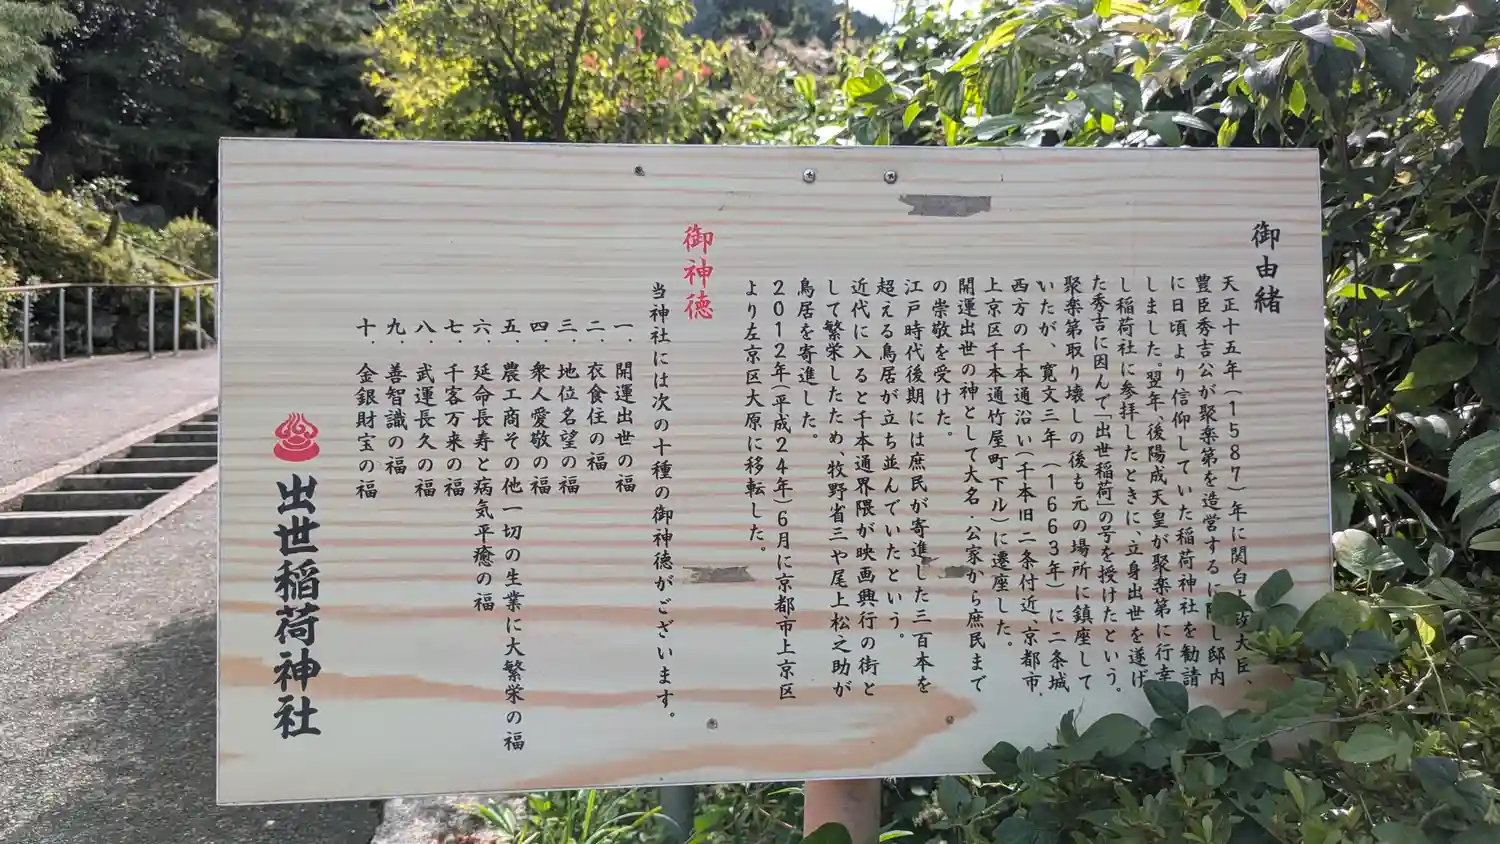 御由緒
天正十五年(1587)年に関白太政大臣、
豊臣秀吉公が聚楽第を造営するに際し邸内
に日頃より信仰していた稲荷神社を勧請
しました。翌年、後陽成天皇が聚楽第に行幸
し稲荷社に参拝したときに、立身出世を遂げ
た秀吉に因んで「出世稲荷」の号を授けたという。
聚楽第取り壊しの後も元の場所に鎮座して
いたが、寛文三年(1663年)に二条城
西方の千本通沿い(千本旧二条付近、京都市
上京区千本通竹屋町下ル)に遷座した。
開運出世の神として大名・公家から庶民まで
の崇敬を受けた。
江戸時代後期には庶民が寄進した三百本を
超える鳥居が立ち並んでいたという。
近代に入ると千本通界隈が映画興行の街と
して繁栄したため、牧野省三や尾上松之助が
鳥居を寄進した。
2012年(平成24年)6月に京都市上京区
より左京区大原に移転した。
御神徳
当神社には次の十種の御神徳がございます。
一.開運出世の福
二.衣食住の福
三.地位名望の福
四.衆人愛敬の福
五.農工商その他一切の生業に大繁栄の福
六.延命長寿と病気平癒の福
七.千客万来の福
八.武運長久の福
九.善智識の福
十.金銀財宝の福
出世稲荷神社